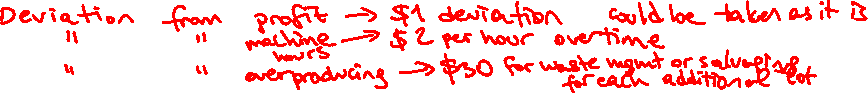 Deviation from profit → $1 deviation could be taken as it is
" " machine hours → $2 per hour overtime
" " overproducing → $30 for waste mgmt or salvaging for each additional lot